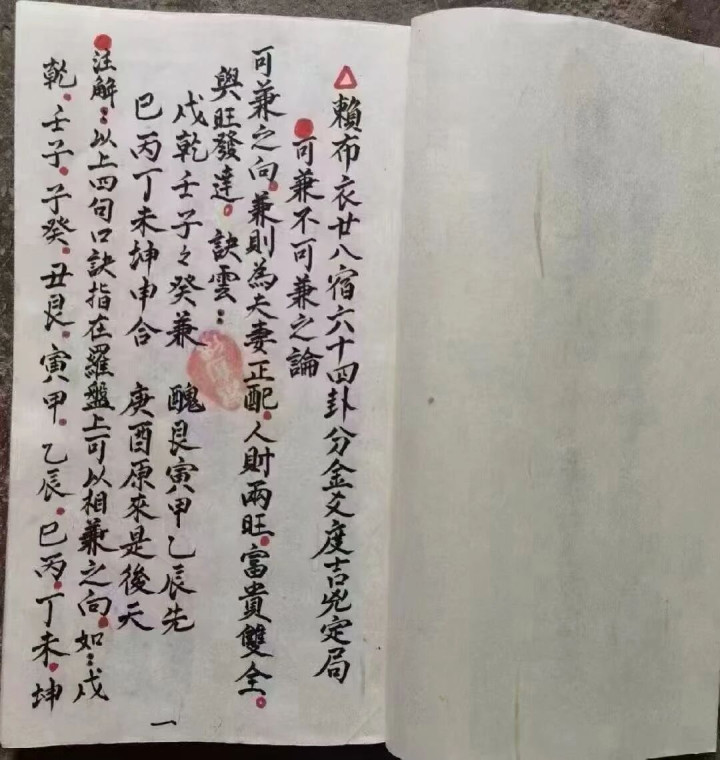 △賴布衣廿八宿六十四卦分金爻度吉兇定局
可兼不可兼之論
可兼之向。兼則為夫妻正配。人財兩旺。富貴雙全。
與旺發達。訣雲：
戌乾壬子々癸兼 醜艮寅甲乙辰先
巳丙丁未坤申合 庚酉原來是後天
注解：以上四句口訣指在羅盤上可以相兼之向。如：戌
乾。壬子。子癸。丑艮。寅甲。乙辰。巳丙。丁未。坤
一